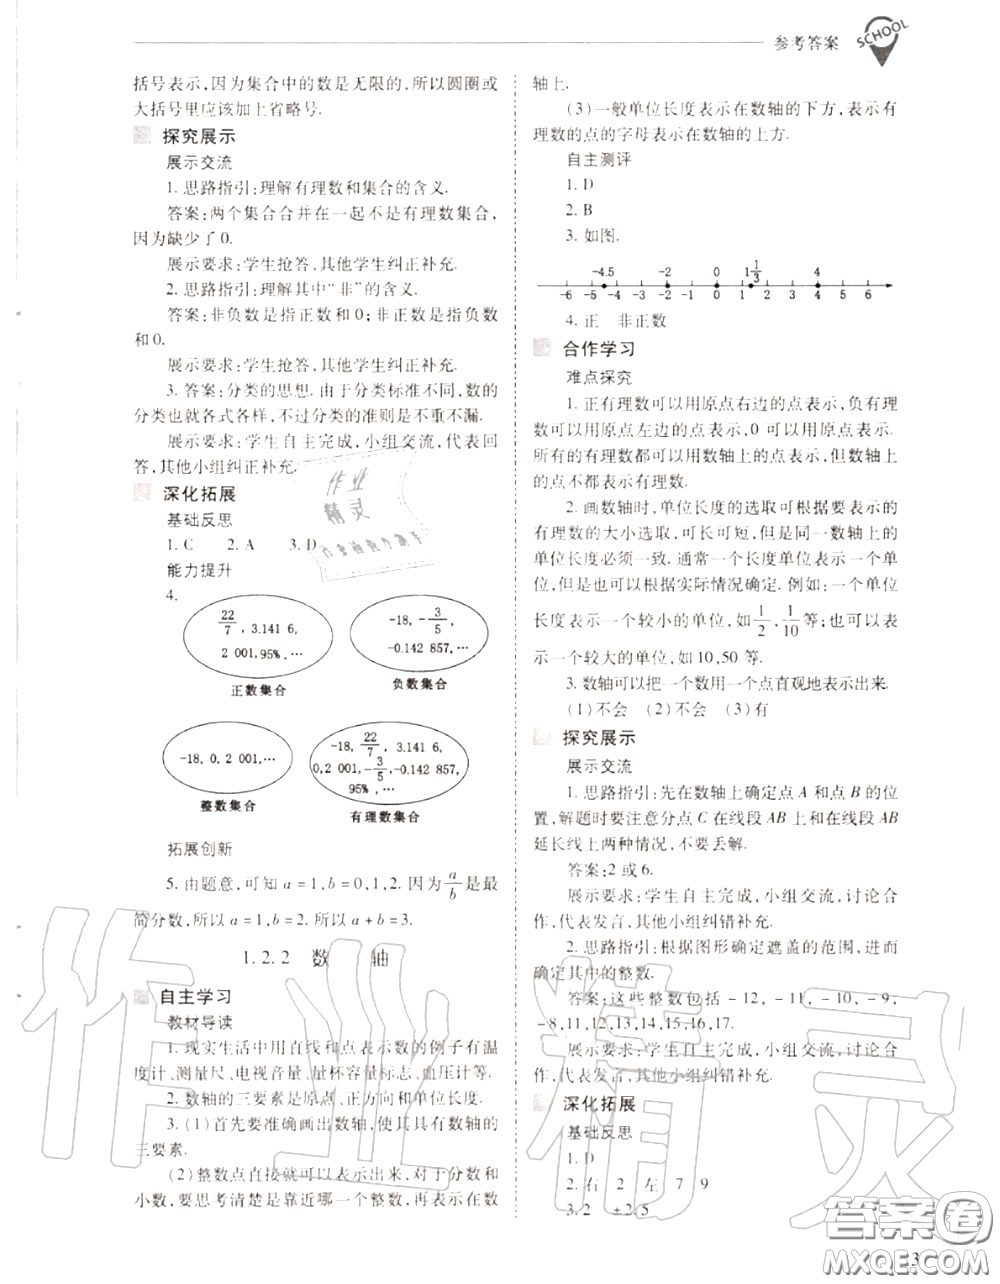 参考答案
SCHOOL
括号表示,因为集合中的数是无限的,所以圆圈或
大括号里应该加上省略号.
探究展示
展示交流
1. 思路指引:理解有理数和集合的含义.
答案:两个集合合并在一起不是有理数集合,
因为缺少了 0.
展示要求:学生抢答,其他学生纠正补充.
2. 思路指引:理解其中“非”的含义.
答案:非负数是指正数和 0;非正数是指负数
和 0.
展示要求:学生抢答,其他学生纠正补充.
3. 答案:分类的思想. 由于分类标准不同,数的
分类也就各式各样,不过分类的准则是不重不漏.
展示要求:学生自主完成,小组交流,代表回
答,其他小组纠正补充.
深化拓展
基础反思
1. C 2. A 3. D
能力提升
4.
22/7, 3.141 6,
2 001,95%,…
正数集合
-18, -3/5,
-0.142 857,…
负数集合
-18, 0, 2 001,…
整数集合
-18, 22/7, 3.141 6,
0,2 001,-3/5,-0.142 857,
95%,…
有理数集合
拓展创新
5. 由题意,可知 a=1,b=0,1,2. 因为 a/b 是最
简分数,所以 a=1,b=2. 所以 a+b=3.
1.2.2 数 轴
自主学习
教材导读
1. 现实生活中用直线和点表示数的例子有温
度计、测量尺、电视音量、量杯容量标志、血压计等.
2. 数轴的三要素是原点、正方向和单位长度.
3. (1)首先要准确画出数轴,使其具有数轴的
三要素.
(2)整数点直接就可以表示出来,对于分数和
小数,要思考清楚是靠近哪一个整数,再表示在数
轴上.
(3)一般单位长度表示在数轴的下方,表示有
理数的点的字母表示在数轴的上方.
自主测评
1. D
2. B
3. 如图.
-4.5 -2 0 1 1/3 4
-6 -5 -4 -3 -2 -1 0 1 2 3 4 5 6
4. 正 非正数
合作学习
难点探究
1. 正有理数可以用原点右边的点表示,负有理
数可以用原点左边的点表示,0 可以用原点表示.
所有的有理数都可以用数轴上的点表示,但数轴上
的点不都表示有理数.
2. 画数轴时,单位长度的选取可根据要表示的
有理数的大小选取,可长可短,但是同一数轴上的
单位长度必须一致. 通常一个长度单位表示一个单
位,但是也可以根据实际情况确定. 例如:一个单位
长度表示一个较小的单位,如 1/2, 1/10 等;也可以表
示一个较大的单位,如 10,50 等.
3. 数轴可以把一个数用一个点直观地表示出来.
(1)不会 (2)不会 (3)有
探究展示
展示交流
1. 思路指引:先在数轴上确定点 A 和点 B 的位
置,解题时要注意分点 C 在线段 AB 上和在线段 AB
延长线上两种情况,不要丢解.
答案:2 或 6.
展示要求:学生自主完成,小组交流,讨论合
作,代表发言,其他小组纠错补充.
2. 思路指引:根据图形确定遮盖的范围,进而
确定其中的整数.
答案:这些整数包括 -12, -11, -10, -9,
-8,11,12,13,14,15,16,17.
展示要求:学生自主完成,小组交流,讨论合
作,代表发言,其他小组纠错补充.
深化拓展
基础反思
1. D
2. 右 2 左 7 9
3. 2 ±2.5
3
作业精灵
作业精灵
答案圈
MXQE.COM